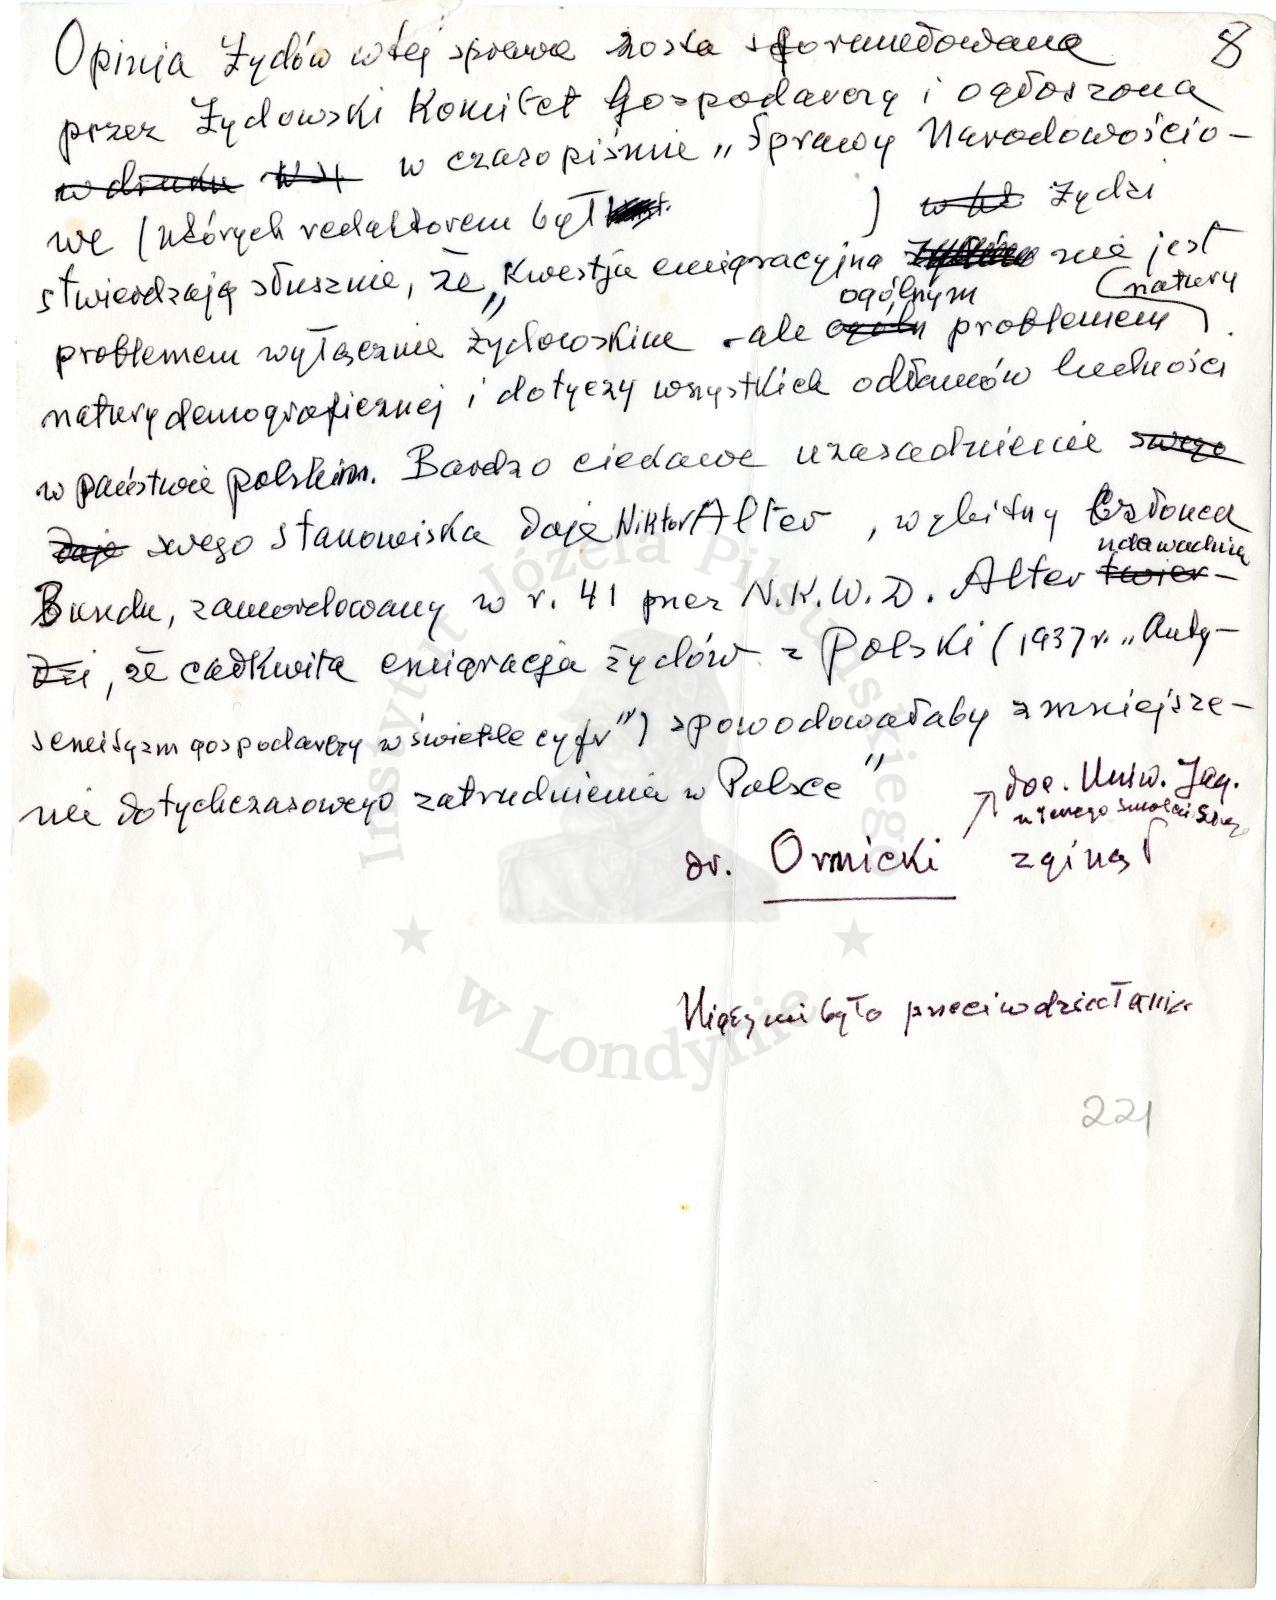 8
Opinja Żydów w tej sprawie zosta sformułowana
przez Żydowski Komitet Gospodarczy i ogłoszona
w druku w czasopiśmie „Sprawy Narodowościo-
we (których redaktorem był ) Żydzi
stwierdzają słusznie, że „Kwestja emigracyjna nie jest
ogólnym (natury
problemem wyłącznie żydowskim - ale ogóln problemem
natury demograficznej i dotyczy wszystkich odłamów ludności
w państwie polskim. Bardzo ciekawe uzasadnienie swego
daje swego stanowiska daje Wiktor Alter, wybitny członek
udawadnia
Bundu, zamordowany w r. 41 przez N.K.W.D. Alter twier-
dzi, że całkwita emigracja żydów z Polski (1937 r. „Anty-
semityzm gospodarczy w świetle cyfr") spowodowałaby zmniejsze-
nie dotychczasowego zatrudnienia w Polsce"
doc. Uniw. Jag.
dr. Ornicki zginął
Więzy nie było przeciwdziałania
221
Instytut Józefa Piłsudskiego
w Londynie